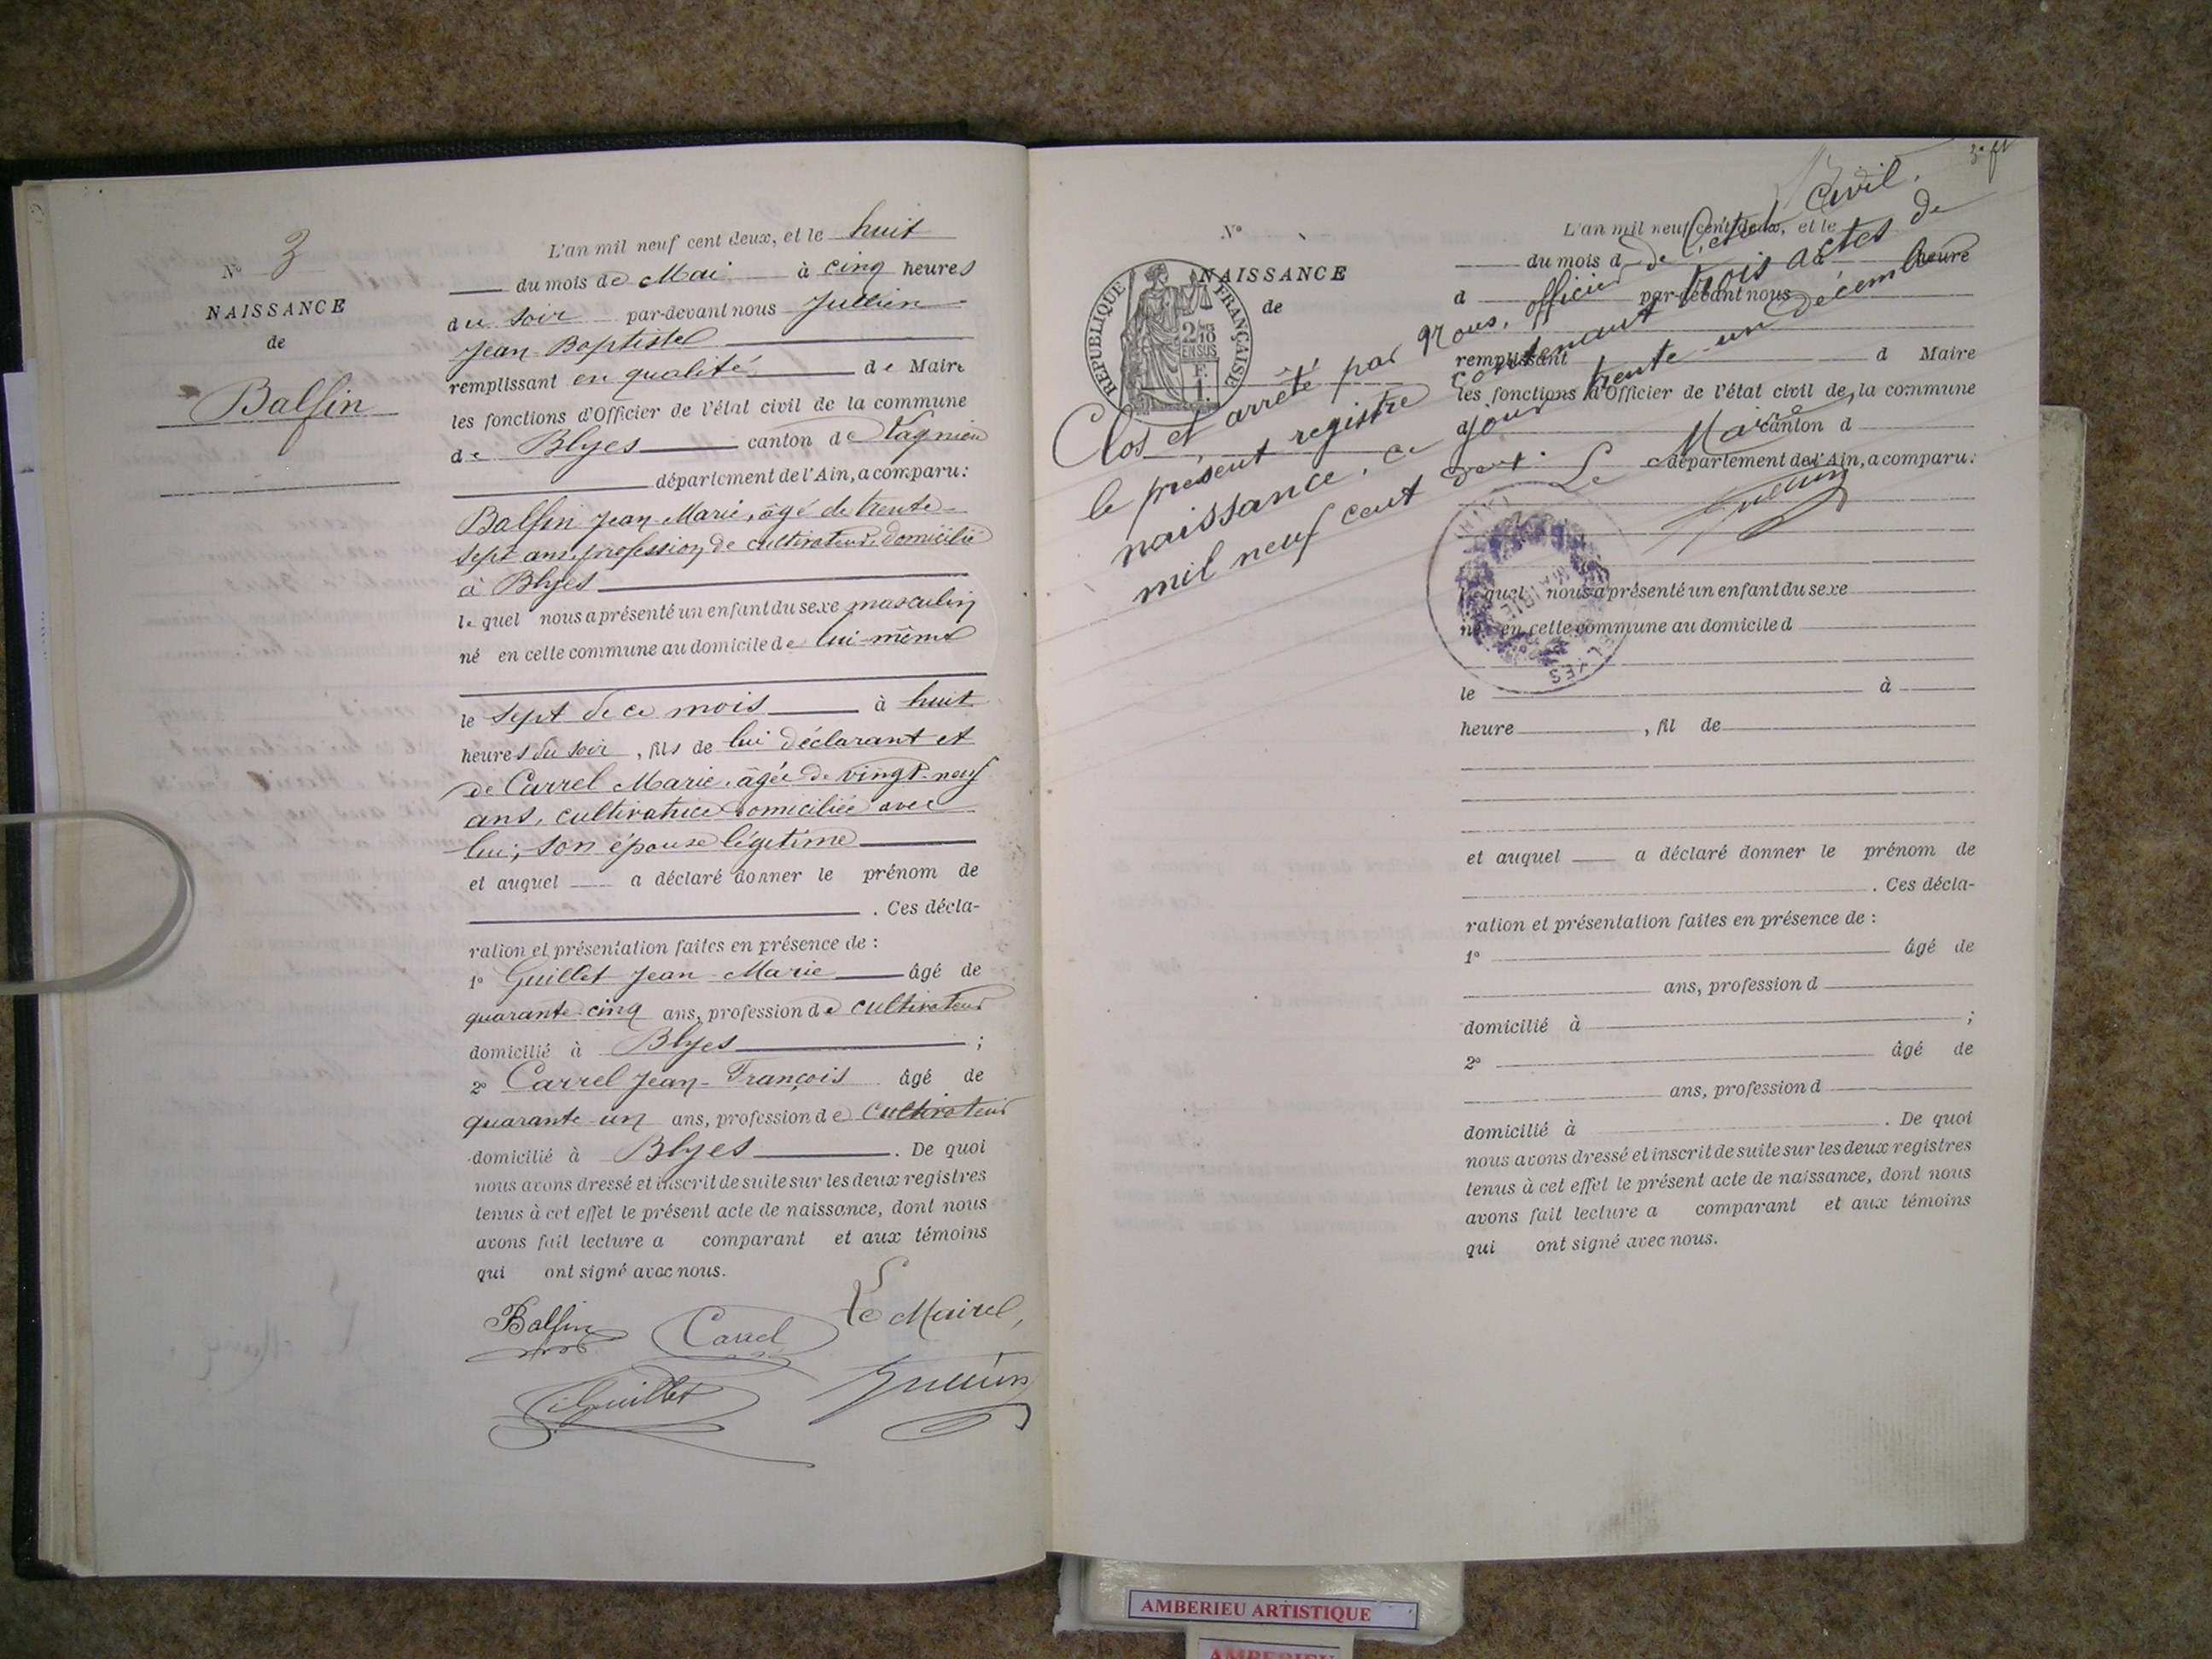 N° 3
NAISSANCE
de
Balfin
L'an mil neuf cent deux, et le huit
du mois de Mai à cinq heures
du soir par-devant nous Jullien
Jean-Baptiste
remplissant en qualité de Maire
les fonctions d'Officier de l'état civil de la commune
de Blyes canton de Lagnieu
département de l'Ain, a comparu:
Balfin Jean-Marie, âgé de trente-
sept ans, profession de cultivateur, domicilié
à Blyes
lequel nous a présenté un enfant du sexe masculin
né en cette commune au domicile de lui-même
le sept de ce mois à huit
heures du soir, fils de lui déclarant et
de Carrel Marie, âgée de vingt-neuf
ans, cultivatrice domiciliée avec
lui, son épouse légitime
et auquel a déclaré donner le prénom de
. Ces décla-
ration et présentation faites en présence de :
1° Guillet Jean-Marie âgé de
quarante-cinq ans, profession de cultivateur
domicilié à Blyes ;
2° Carrel Jean-François âgé de
quarante-un ans, profession de cultivateur
domicilié à Blyes . De quoi
nous avons dressé et inscrit de suite sur les deux registres
tenus à cet effet le présent acte de naissance, dont nous
avons fait lecture a comparant et aux témoins
qui ont signé avec nous.
Balfin Carrel Le Maire,
Guillet Jullien
3e ft
N°
NAISSANCE
de
REPUBLIQUE FRANÇAISE
2/10
EN SUS
F.
1.
Clos et arrêté par Nous, officier de l'état civil.
le présent registre contenant trois actes de
naissance, ce jour trente-un décembre
mil neuf cent deux. Le Maire,
Jullien
L'an mil neuf cent deux, et le
du mois d
heure
d par-devant nous
remplissant d Maire
les fonctions d'Officier de l'état civil de la commune
d canton d
département de l'Ain, a comparu:
MAIRIE
BLYES
lequel nous a présenté un enfant du sexe
né en cette commune au domicile d
le à
heure , fil de
et auquel a déclaré donner le prénom de
. Ces décla-
ration et présentation faites en présence de :
1° âgé de
ans, profession d
domicilié à ;
2° âgé de
ans, profession d
domicilié à . De quoi
nous avons dressé et inscrit de suite sur les deux registres
tenus à cet effet le présent acte de naissance, dont nous
avons fait lecture a comparant et aux témoins
qui ont signé avec nous.
AMBERIEU ARTISTIQUE
AMBERIEU